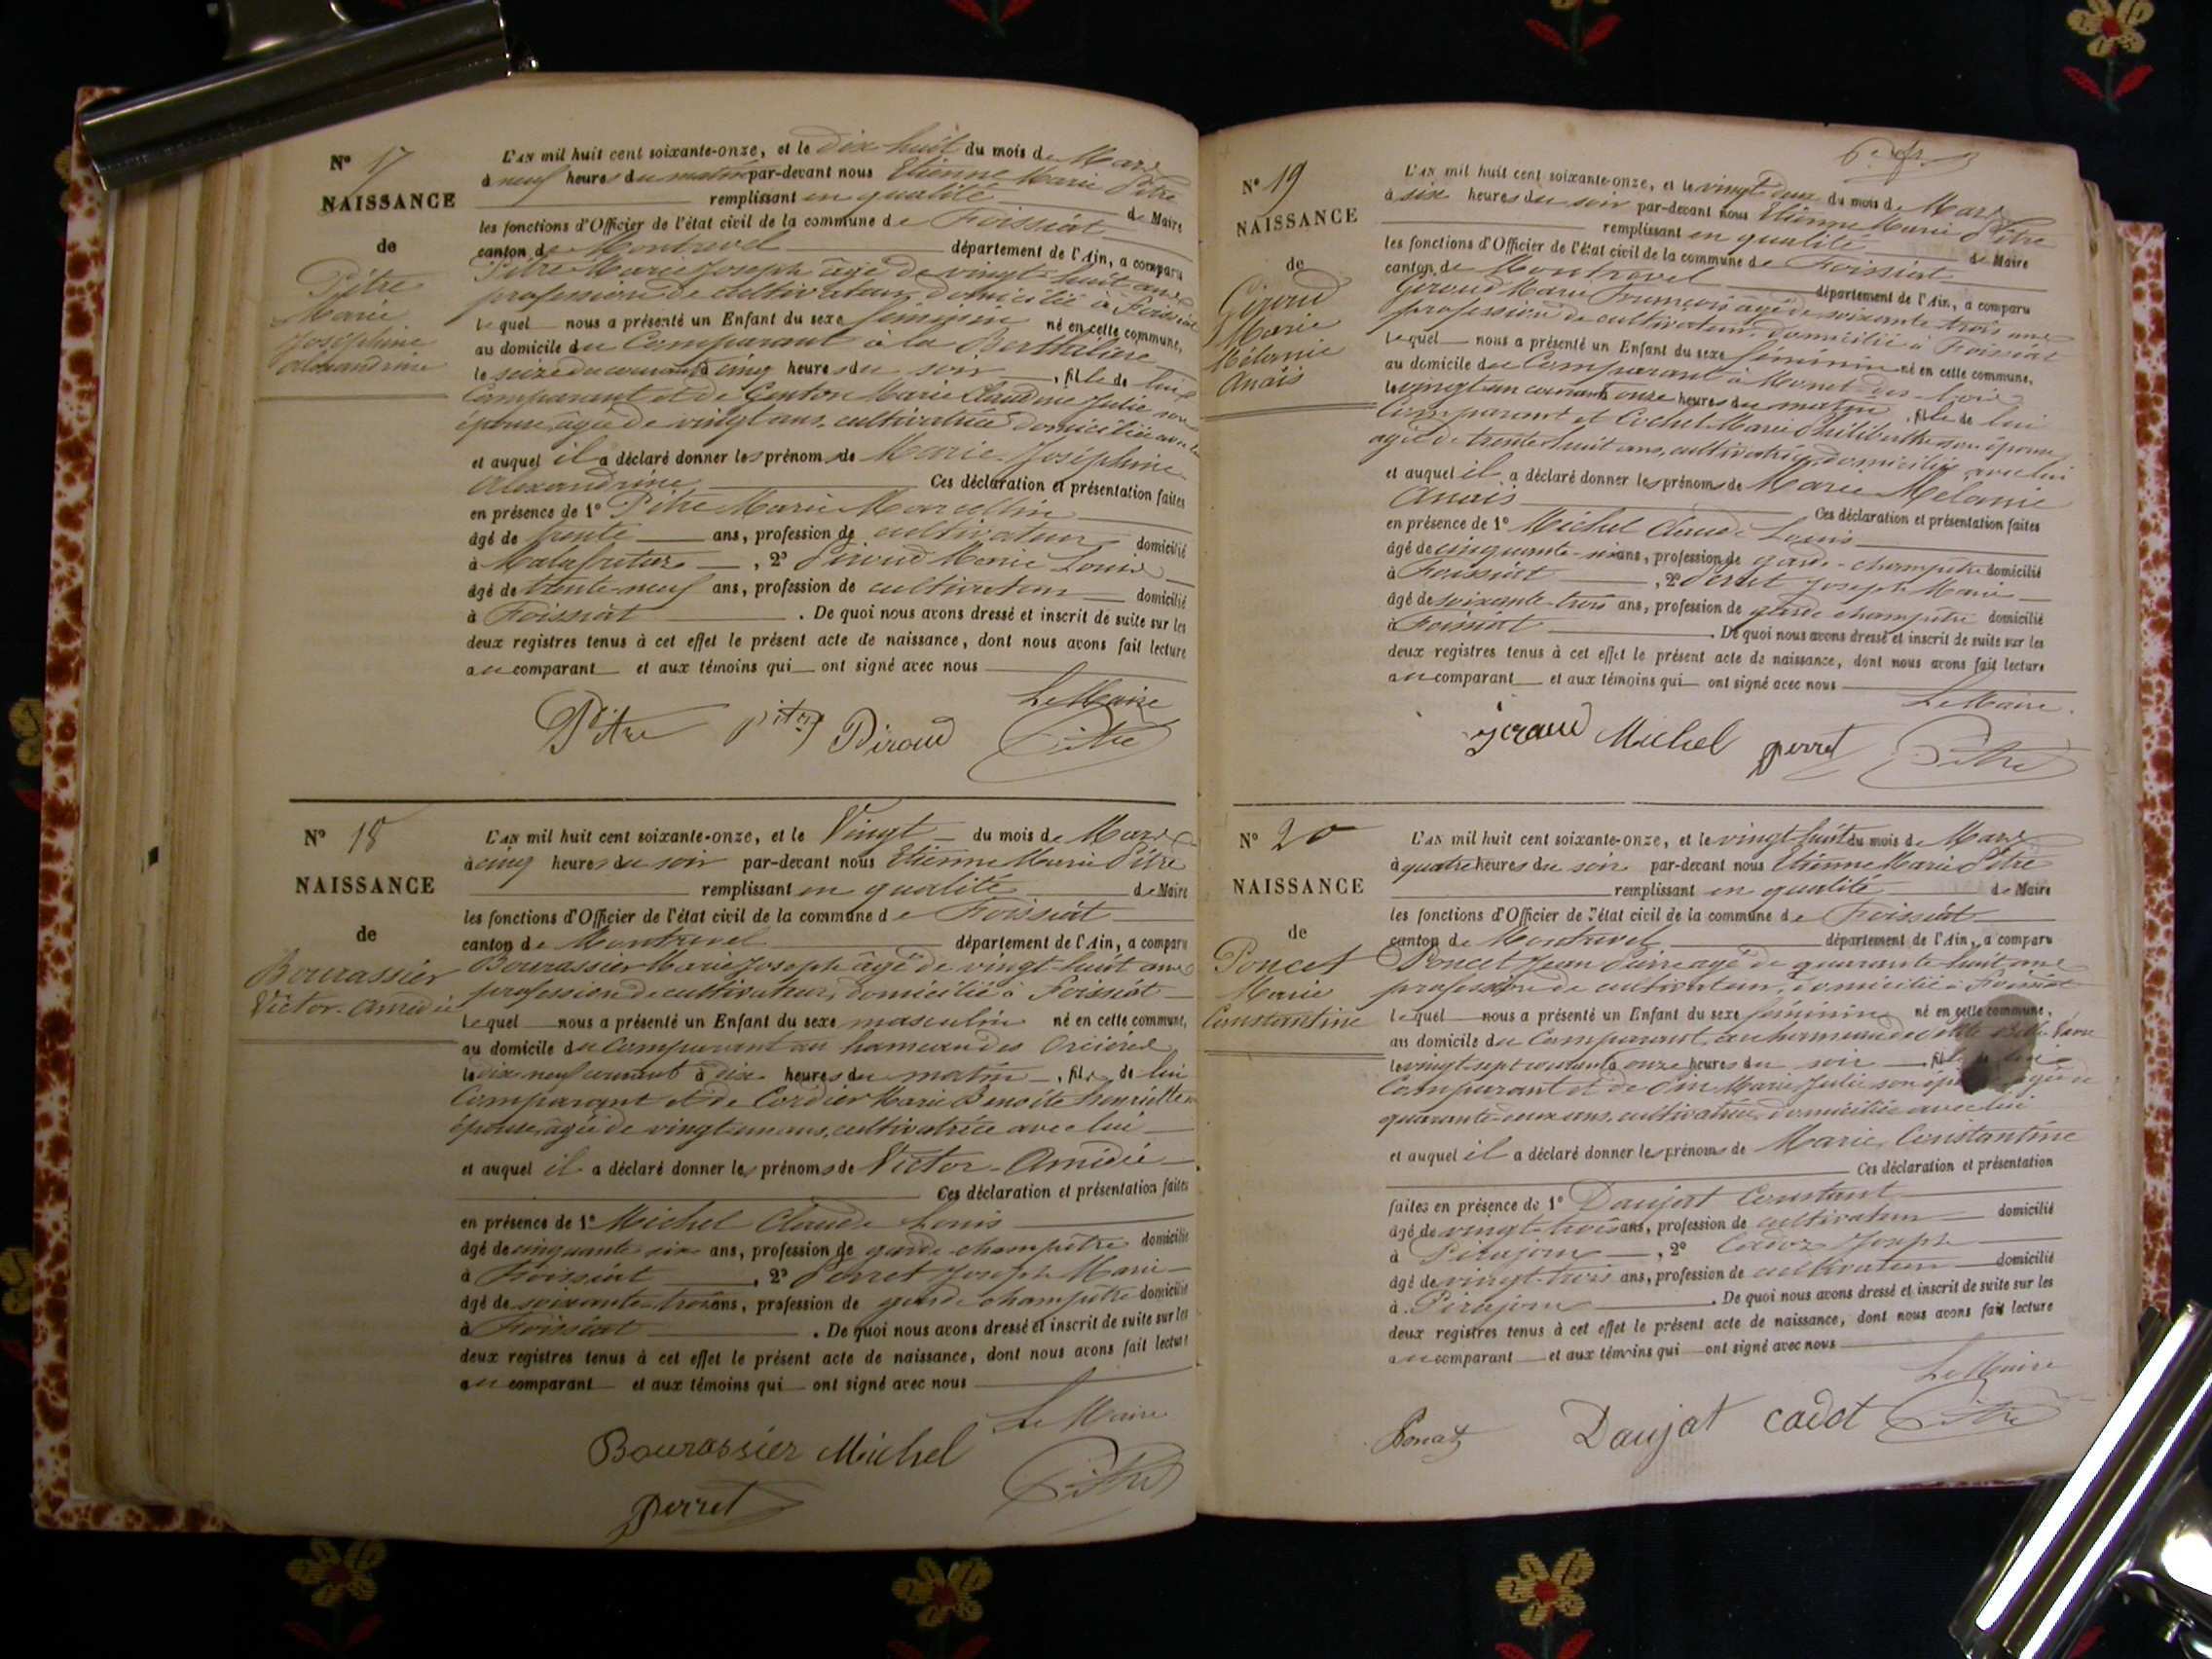 N° 17
NAISSANCE
de
Pitre
Marie
Joséphine
Alexandrine
L'AN mil huit cent soixante-onze, et le dix huit du mois de Mars
à neuf heures du matin par-devant nous Etienne Marie Pitre
remplissant en qualité de Maire
les fonctions d'Officier de l'état civil de la commune de Foissiat
canton de Montrevel département de l'Ain, a comparu
Pitre Marie Joseph âgé de vingt-huit ans
profession de cultivateur, domicilié à Foissiat
lequel nous a présenté un Enfant du sexe féminin né en cette commune,
au domicile du Comparant à la
le seize du courant à cinq heures du soir, fille de lui
Comparant et de Genton Marie Claudine Julie son
épouse, âgée de vingt ans, cultivatrice domiciliée avec lui
et auquel il a déclaré donner les prénoms de Marie Joséphine
Alexandrine Ces déclaration et présentation faites
en présence de 1° Pitre Marie Marcellin
âgé de trente ans, profession de cultivateur domicilié
à Malafretaz, 2° Piroud Marie Louis
âgé de trente-neuf ans, profession de cultivateur domicilié
à Foissiat. De quoi nous avons dressé et inscrit de suite sur les
deux registres tenus à cet effet le présent acte de naissance, dont nous avons fait lecture
au comparant et aux témoins qui ont signé avec nous
Le Maire
Pitre pitre Piroud Pitre
N° 18
NAISSANCE
de
Bourassier
Victor-Amédié
L'AN mil huit cent soixante-onze, et le Vingt du mois de Mars
à cinq heures du soir par-devant nous Etienne Marie Pitre
remplissant en qualité de Maire
les fonctions d'Officier de l'état civil de la commune de Foissiat
canton de Montrevel département de l'Ain, a comparu
Bourassier Marie Joseph âgé de vingt-huit ans
profession de cultivateur, domicilié à Foissiat
lequel nous a présenté un Enfant du sexe masculin né en cette commune,
au domicile du Comparant au hameau des
le dix-neuf courant à dix heures du matin, fils de lui
Comparant et de Cordier Marie Benoite Henriette
épouse, âgée de vingt-un ans, cultivatrice avec lui
et auquel il a déclaré donner les prénoms de Victor-Amédié
Ces déclaration et présentation faites
en présence de 1° Michel Claude Louis
âgé de cinquante six ans, profession de garde-champêtre domicilié
à Foissiat, 2° Perret Joseph Marie
âgé de soixante-trois ans, profession de garde champêtre domicilié
à Foissiat. De quoi nous avons dressé et inscrit de suite sur les
deux registres tenus à cet effet le présent acte de naissance, dont nous avons fait lecture
au comparant et aux témoins qui ont signé avec nous
Le Maire
Bourassier Michel
perret Pitre
N° 19
NAISSANCE
de
Giroud
Marie
Mélanie
Anaïs
L'AN mil huit cent soixante-onze, et le vingt deux du mois de Mars
à six heures du soir par-devant nous Etienne Marie Pitre
remplissant en qualité de Maire
les fonctions d'Officier de l'état civil de la commune de Foissiat
canton de Montrevel département de l'Ain, a comparu
Giroud Marie François âgé de soixante trois ans
profession de cultivateur, domicilié à Foissiat
lequel nous a présenté un Enfant du sexe féminin né en cette commune,
au domicile du Comparant à
le vingt un courant à onze heures du matin, fille de lui
Comparant et Cochet Marie Philiberthe son épouse
âgée de trente huit ans, cultivatrice, domiciliée avec lui
et auquel il a déclaré donner les prénoms de Marie Mélanie
Anaïs Ces déclaration et présentation faites
en présence de 1° Michel Claude Louis
âgé de cinquante-six ans, profession de garde-champêtre domicilié
à Foissiat, 2° Perret Joseph Marie
âgé de soixante-trois ans, profession de garde champêtre domicilié
à Foissiat. De quoi nous avons dressé et inscrit de suite sur les
deux registres tenus à cet effet le présent acte de naissance, dont nous avons fait lecture
au comparant et aux témoins qui ont signé avec nous
Le Maire.
giraud Michel perret Pitre
N° 20
NAISSANCE
de
Poncet
Marie
Constantine
L'AN mil huit cent soixante-onze, et le vingt huit du mois de Mars
à quatre heures du soir par-devant nous Etienne Marie Pitre
remplissant en qualité de Maire
les fonctions d'Officier de l'état civil de la commune de Foissiat
canton de Montrevel département de l'Ain, a comparu
Poncet Jean Pierre âgé de quarante-huit ans
profession de cultivateur, domicilié à Foissiat
lequel nous a présenté un Enfant du sexe féminin né en cette commune,
au domicile du Comparant, au hameau de
le vingt sept courant à onze heures du soir, fille de lui
Comparant et de Pin Marie Julie son épouse âgée de
quarante-deux ans, cultivatrice, domiciliée avec lui
et auquel il a déclaré donner les prénoms de Marie Constantine
Ces déclaration et présentation
faites en présence de 1° Daujat Constant
âgé de vingt-trois ans, profession de cultivateur domicilié
à Pirajoux, 2° Joseph
âgé de vingt-trois ans, profession de cultivateur domicilié
à Pirajoux. De quoi nous avons dressé et inscrit de suite sur les
deux registres tenus à cet effet le présent acte de naissance, dont nous avons fait lecture
au comparant et aux témoins qui ont signé avec nous
Le Maire
Daujat cadot Pitre